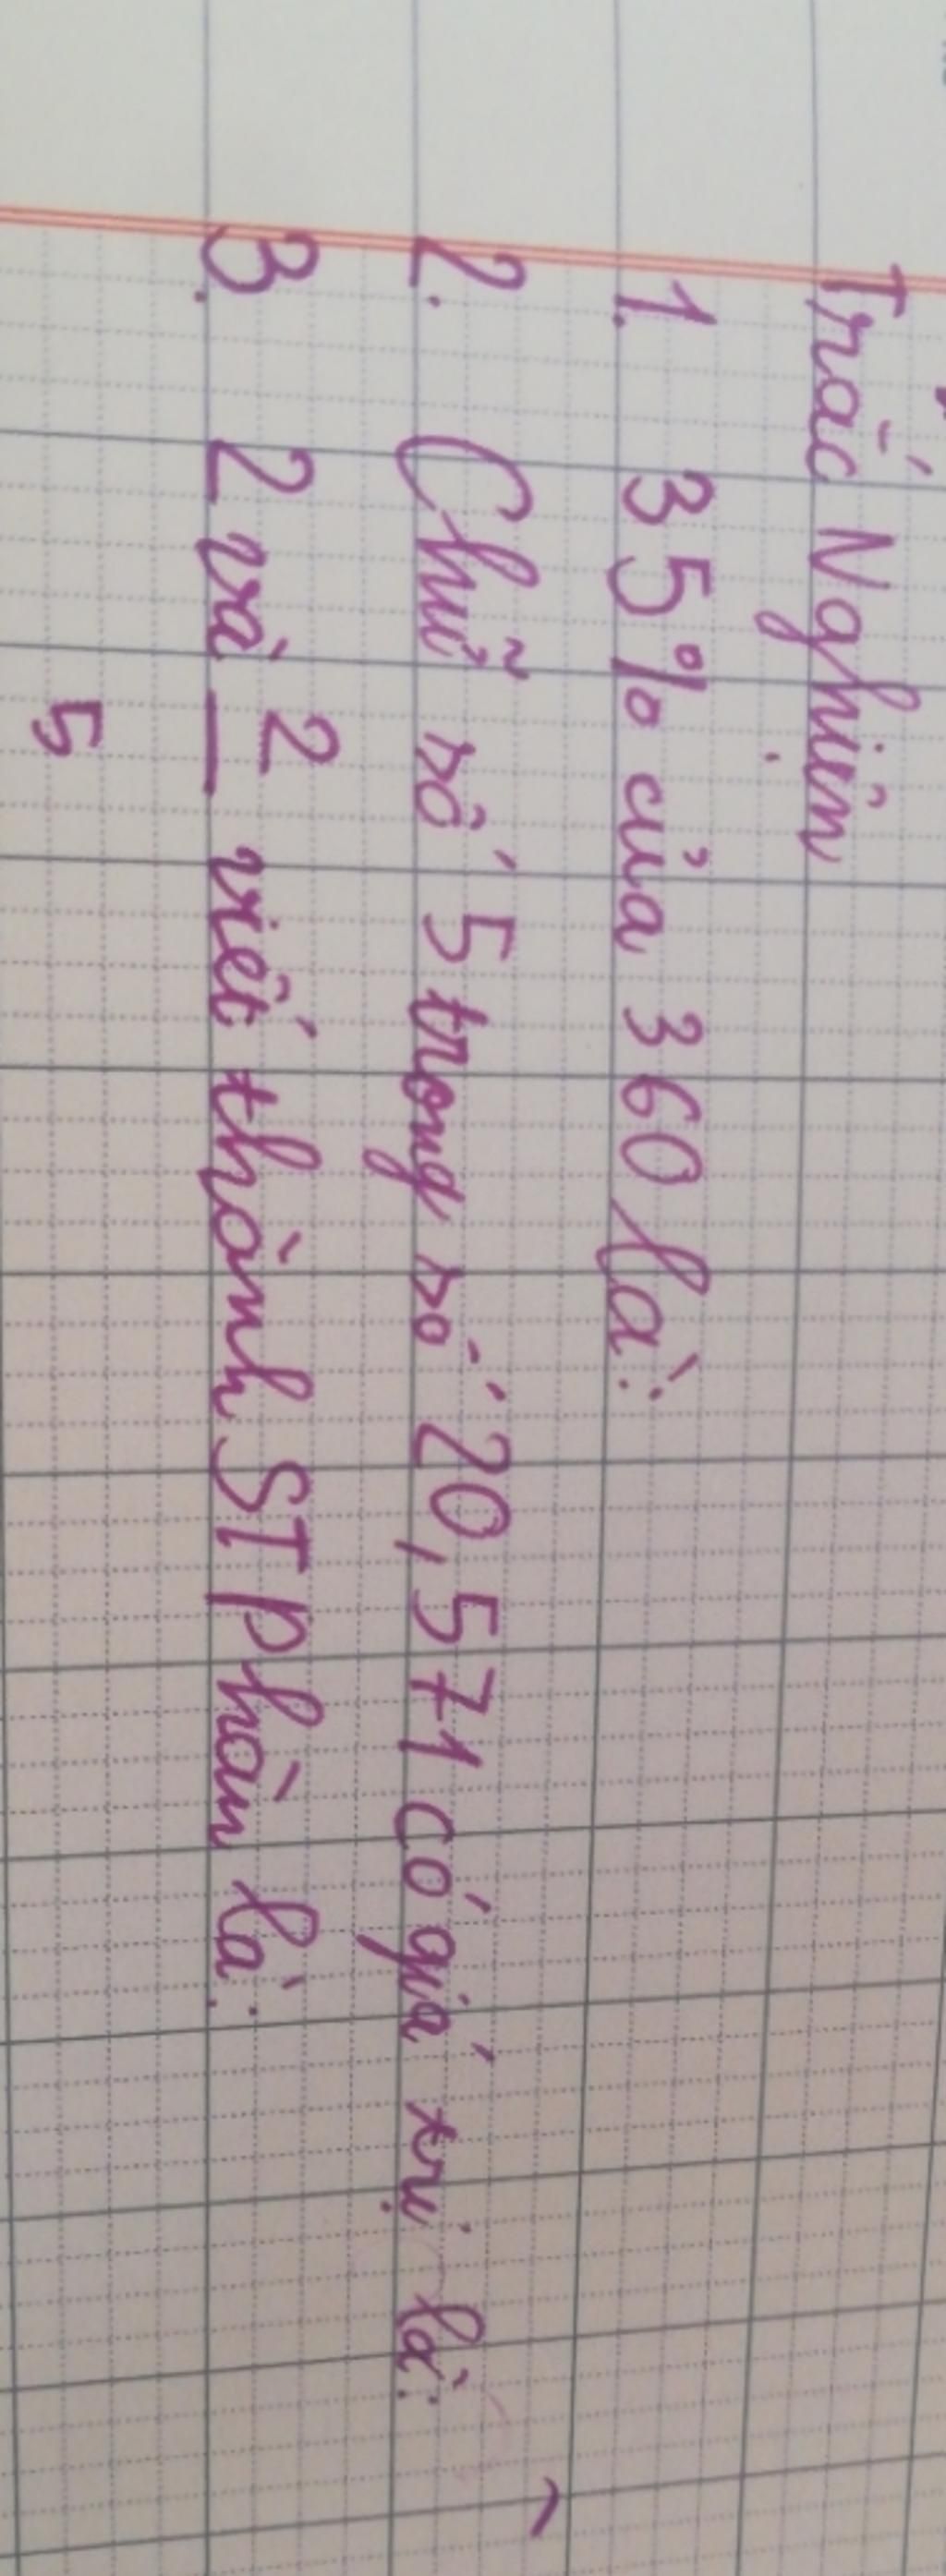 Trắc Nghiệm
1. 35% của 360 là:
2. Chữ số 5 trong số 20,571 có giá trị là:
3. 2 và 2 viết thành STP hân là:
5